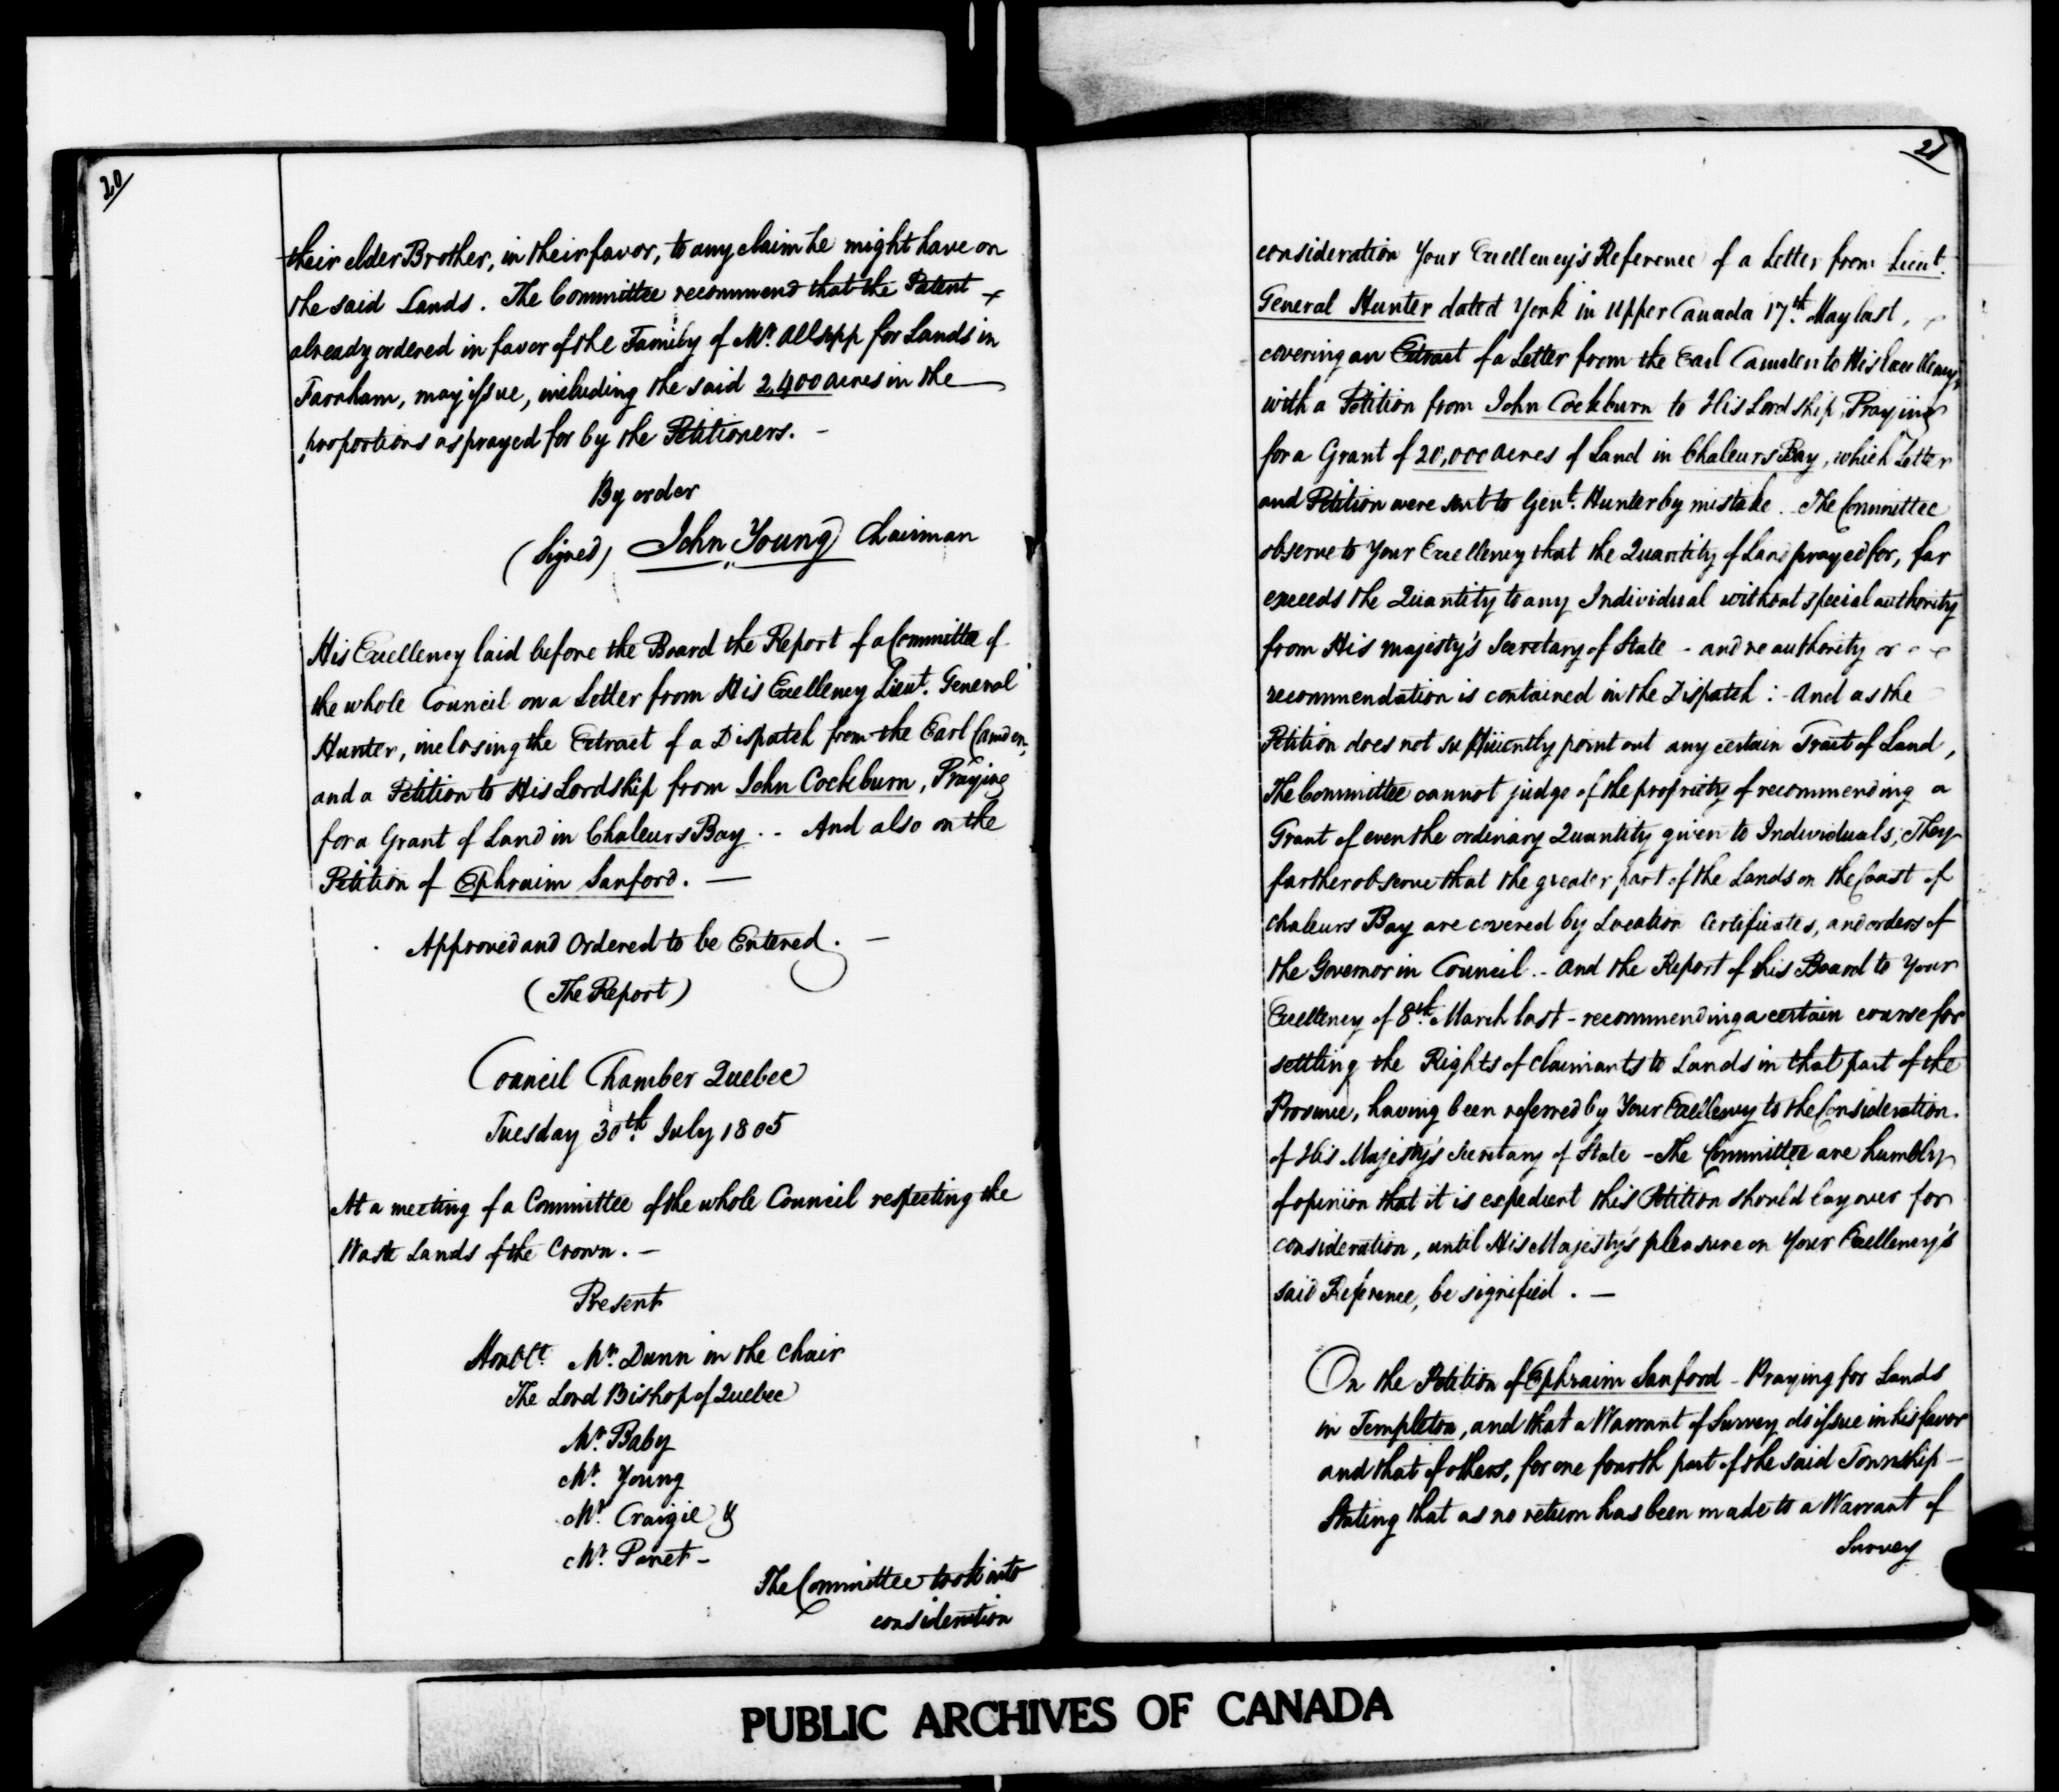 20
their elder Brother, in their favor, to any claim he might have on
the said Lands. The Committee recommend that the Patent
already ordered in favor of the Family of Mr. Allsopp for Lands in
Farnham, may issue, including the said 2,400 acres in the
proportions as prayed for by the Petitioners. -
By order
(Signed) John Young Chairman
His Excellency laid before the Board the Report of a Committee of
the whole Council on a Letter from His Excellency Lieut. General
Hunter, inclosing the Extract of a Dispatch from the Earl Camden,
and a Petition to His Lordship from John Cockburn, Praying
for a Grant of Land in Chaleurs Bay. - And also on the
Petition of Ephraim Sanford. -
Approved and Ordered to be Entered. -
(The Report)
Council Chamber Quebec
Tuesday 30th July 1805
At a meeting of a Committee of the whole Council respecting the
Waste Lands of the Crown. -
Present
Honble. Mr. Dunn in the Chair
The Lord Bishop of Quebec
Mr. Baby
Mr. Young
Mr. Craigie &
Mr. Panet -
The Committee took into
consideration
21
consideration Your Excellency's Reference of a Letter from Lieut.
General Hunter dated York in Upper Canada 17th. May last,
covering an Extract of a Letter from the Earl Camden to His Excellency,
with a Petition from John Cockburn to His Lordship, Praying
for a Grant of 20,000 acres of Land in Chaleurs Bay, which Letter
and Petition were sent to Genl. Hunter by mistake. - The Committee
observe to Your Excellency that the Quantity of Land prayed for, far
exceeds the Quantity to any Individual without special authority
from His Majesty's Secretary of State - and no authority or
recommendation is contained in the Dispatch : - And as the
Petition does not sufficiently point out any certain Tract of Land,
The Committee cannot judge of the propriety of recommending a
Grant of even the ordinary Quantity given to Individuals; They
farther observe that the greater part of the Lands on the Coast of
Chaleurs Bay are covered by Location Certificates, and orders of
the Governor in Council. - And the Report of this Board to Your
Excellency of 8th. March last - recommending a certain course for
settling the Rights of Claimants to Lands in that part of the
Province, having been referred by Your Excellency to the Consideration
of His Majesty's Secretary of State - The Committee are humbly
of opinion that it is expedient this Petition should lay over for
consideration, until His Majesty's pleasure on Your Excellency's
said Reference, be signified. -
On the Petition of Ephraim Sanford - Praying for Lands
in Templeton, and that a Warrant of Survey do issue in his favor
and that of others, for one fourth part of the said Township -
Stating that as no return has been made to a Warrant of
Survey
PUBLIC ARCHIVES OF CANADA